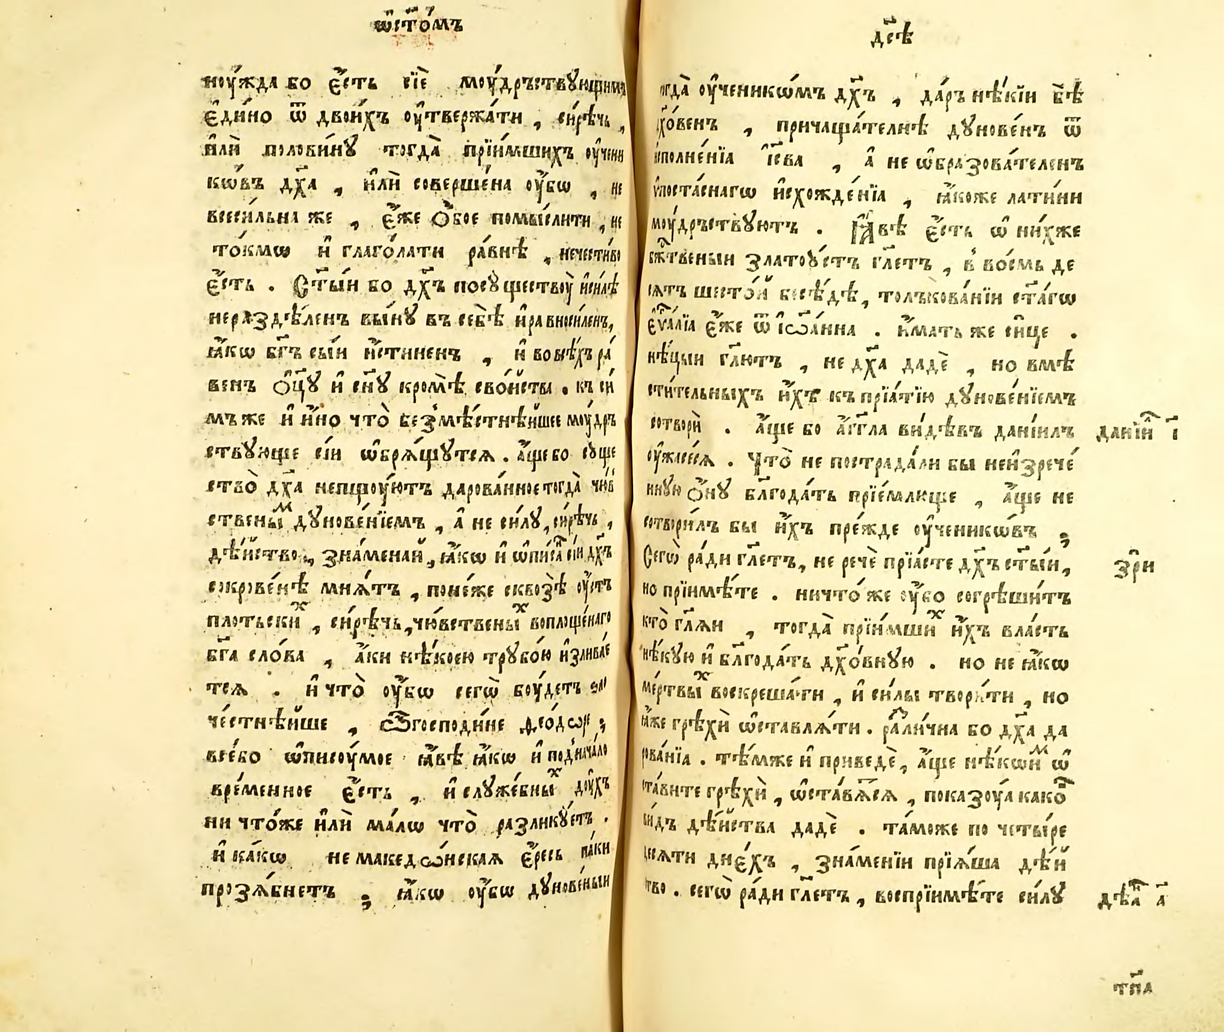 ѡ҆ст҃ѡ́мъ
ноу́жда бо є҆́сть сїѐ моу́дръствꙋющимъ
є҆ди́но ѿ двои́хъ оу҆твержа́ти , си́рѣчь ,
и҆лѝ половинꙋ тогда̀ прїи́мшихъ оу҆чени
кѡ́въ дх҃а , и҆лѝ совершена оу҆́бѡ , не
всеси́льна же , є҆́же ѻ҆́бое помы́слити , не
то́кмѡ и҆ глаго́лати ра́внѣ , нечести́во
є҆́сть . Ст҃ы́и бо дх҃ъ посꙋществоу̀ и҆си́лѣ
неразде́ленъ вы́нꙋ въ себѣ̀ и҆равноси́ленъ,
ꙗ҆́кѡ бг҃ъ сы́и и҆́стиненъ , и҆ вовсѣ́хъ ра́
венъ ѻ҆ц҃ꙋ̀ и҆ сн҃ꙋ кромѣ̀ сво́йствы . къ си́
мъ же и҆ и҆́но что̀ безмѣ́стнѣйшее моу́др
ствꙋюще сїи ѡ҆брѧ́щꙋтсѧ . а҆́ще бо сꙋще
ство̀ дх҃а непщоу́ютъ дарова́нное тогда̀ чю́в
ственыⷨ дꙋнове́нїемъ , а҆ не си́лꙋ , си́рѣчь ,
дѣ́йство , зна́менай , ꙗ҆́кѡ и҆ ѡ҆писа̀сѧ̀ дх҃ъ
сокрове́нѣ мнѧ́тъ , поне́же сквозѣ̀ оу҆стъ
пло́тьскиⷯ , си́рѣчь , чю́вственыⷯ воплоще́наго
бг҃а сло́ва , а҆́ки нѣ́коею трꙋбо́ю и҆злива́е
тсѧ . и҆ что̀ оу҆́бѡ сегѡ̀ боу́детъ ѕло
че́стнѣйше , ѽ господи́не ѳео́дѡре ;
все́бо ѡ҆писоу́мое ꙗ҆́вѣ ꙗ҆́кѡ и҆ поднача́ло
вре́менное є҆́сть , и҆ слꙋже́бныⷯ дꙋхъ
ни что́же и҆лѝ ма́лѡ что̀ разликꙋ́етъ .
и҆ ка́кѡ не македѡ́нскаѧ є҆́ресь па́ки
прозѧ́бнетъ ; ꙗ҆́кѡ оу҆́бѡ дꙋнове́ныи
дс҃ѣ
огда̀ оу҆ченикѡ́мъ дх҃ъ , да́ръ нѣ́кїи бѣ̀
дх҃о́венъ , причаща́телнѣ дꙋнове́нъ ѿ
исполне́нїѧ і҆с҃ва , а҆ не ѡ҆бразова́теленъ
ѵ҆поста́снагѡ и҆схожде́нїѧ , ꙗ҆́коже латини
моу́дръствꙋютъ . Ꙗ҆́вѣ є҆́сть ѡ҆ ни́хже
бж҃твеныи златоꙋ́стъ гл҃етъ , в̾ во́смь де
сѧтъ шесто́й бесѣ́дѣ , толъкова́нїи ст҃а́гѡ
є҆ѵⷢ҇а́лїѧ є҆́же ѿ і҆ѡа́нна . и҆́мать же си́це .
нѣ́цыи гл҃ютъ , не дх҃а дадѐ , но вмѣ
сти́тельныхъ и҆́хъ къ прїѧ́тїю дꙋнове́нїемъ
сотворѝ . а҆́ще бо а҆́гг҃ла ви́дѣвъ данїи́лъ
оу҆жасе́сѧ . Что̀ не пострада́ли бы неи́зрече́
ннꙋю ѻ҆́нꙋ бл҃года́ть прїе́млюще , а҆́ще не
сотвори́лъ бы и҆́хъ пре́жде оу҆ченикѡ́въ ;
Сегѡ̀ ра́ди гл҃етъ , не речѐ прїѧ́сте дх҃ъ ст҃ы́и ,
но прїи́мѣте . ничто́же оу҆́бо согрѣши́тъ
кто̀ гл҃ѧи , тогда̀ прїи́мшиⷯ и҆́хъ вла́сть
нѣ́кꙋю и҆ бл҃года́ть дх҃о́внꙋю . но не ꙗ҆́кѡ
ме́ртвыⷯ воскреша́ти , и҆ си́лы твори́ти , но
ꙗ҆́же грѣхѝ ѡ҆ставлѧ́ти . разли́чна бо дх҃а да
рова́нїѧ . тѣ́мже и҆ приведѐ , а҆́ще нѣ́кѡиⷨ ѡ҆
ста́вите грѣхѝ , ѡ҆ста́вѧтсѧ , показꙋѧ како́в
ви́дъ дѣ́йства дадѐ . та́може по четы́ре
десѧти дне́хъ , зна́менїи прїѧ́ша дѣ́й
ство . сегѡ̀ ра́ди гл҃етъ , воспрїи́мѣте си́лꙋ
данїи́л і҃
зрѝ
дѣѧ҃ а҃
тп҃а